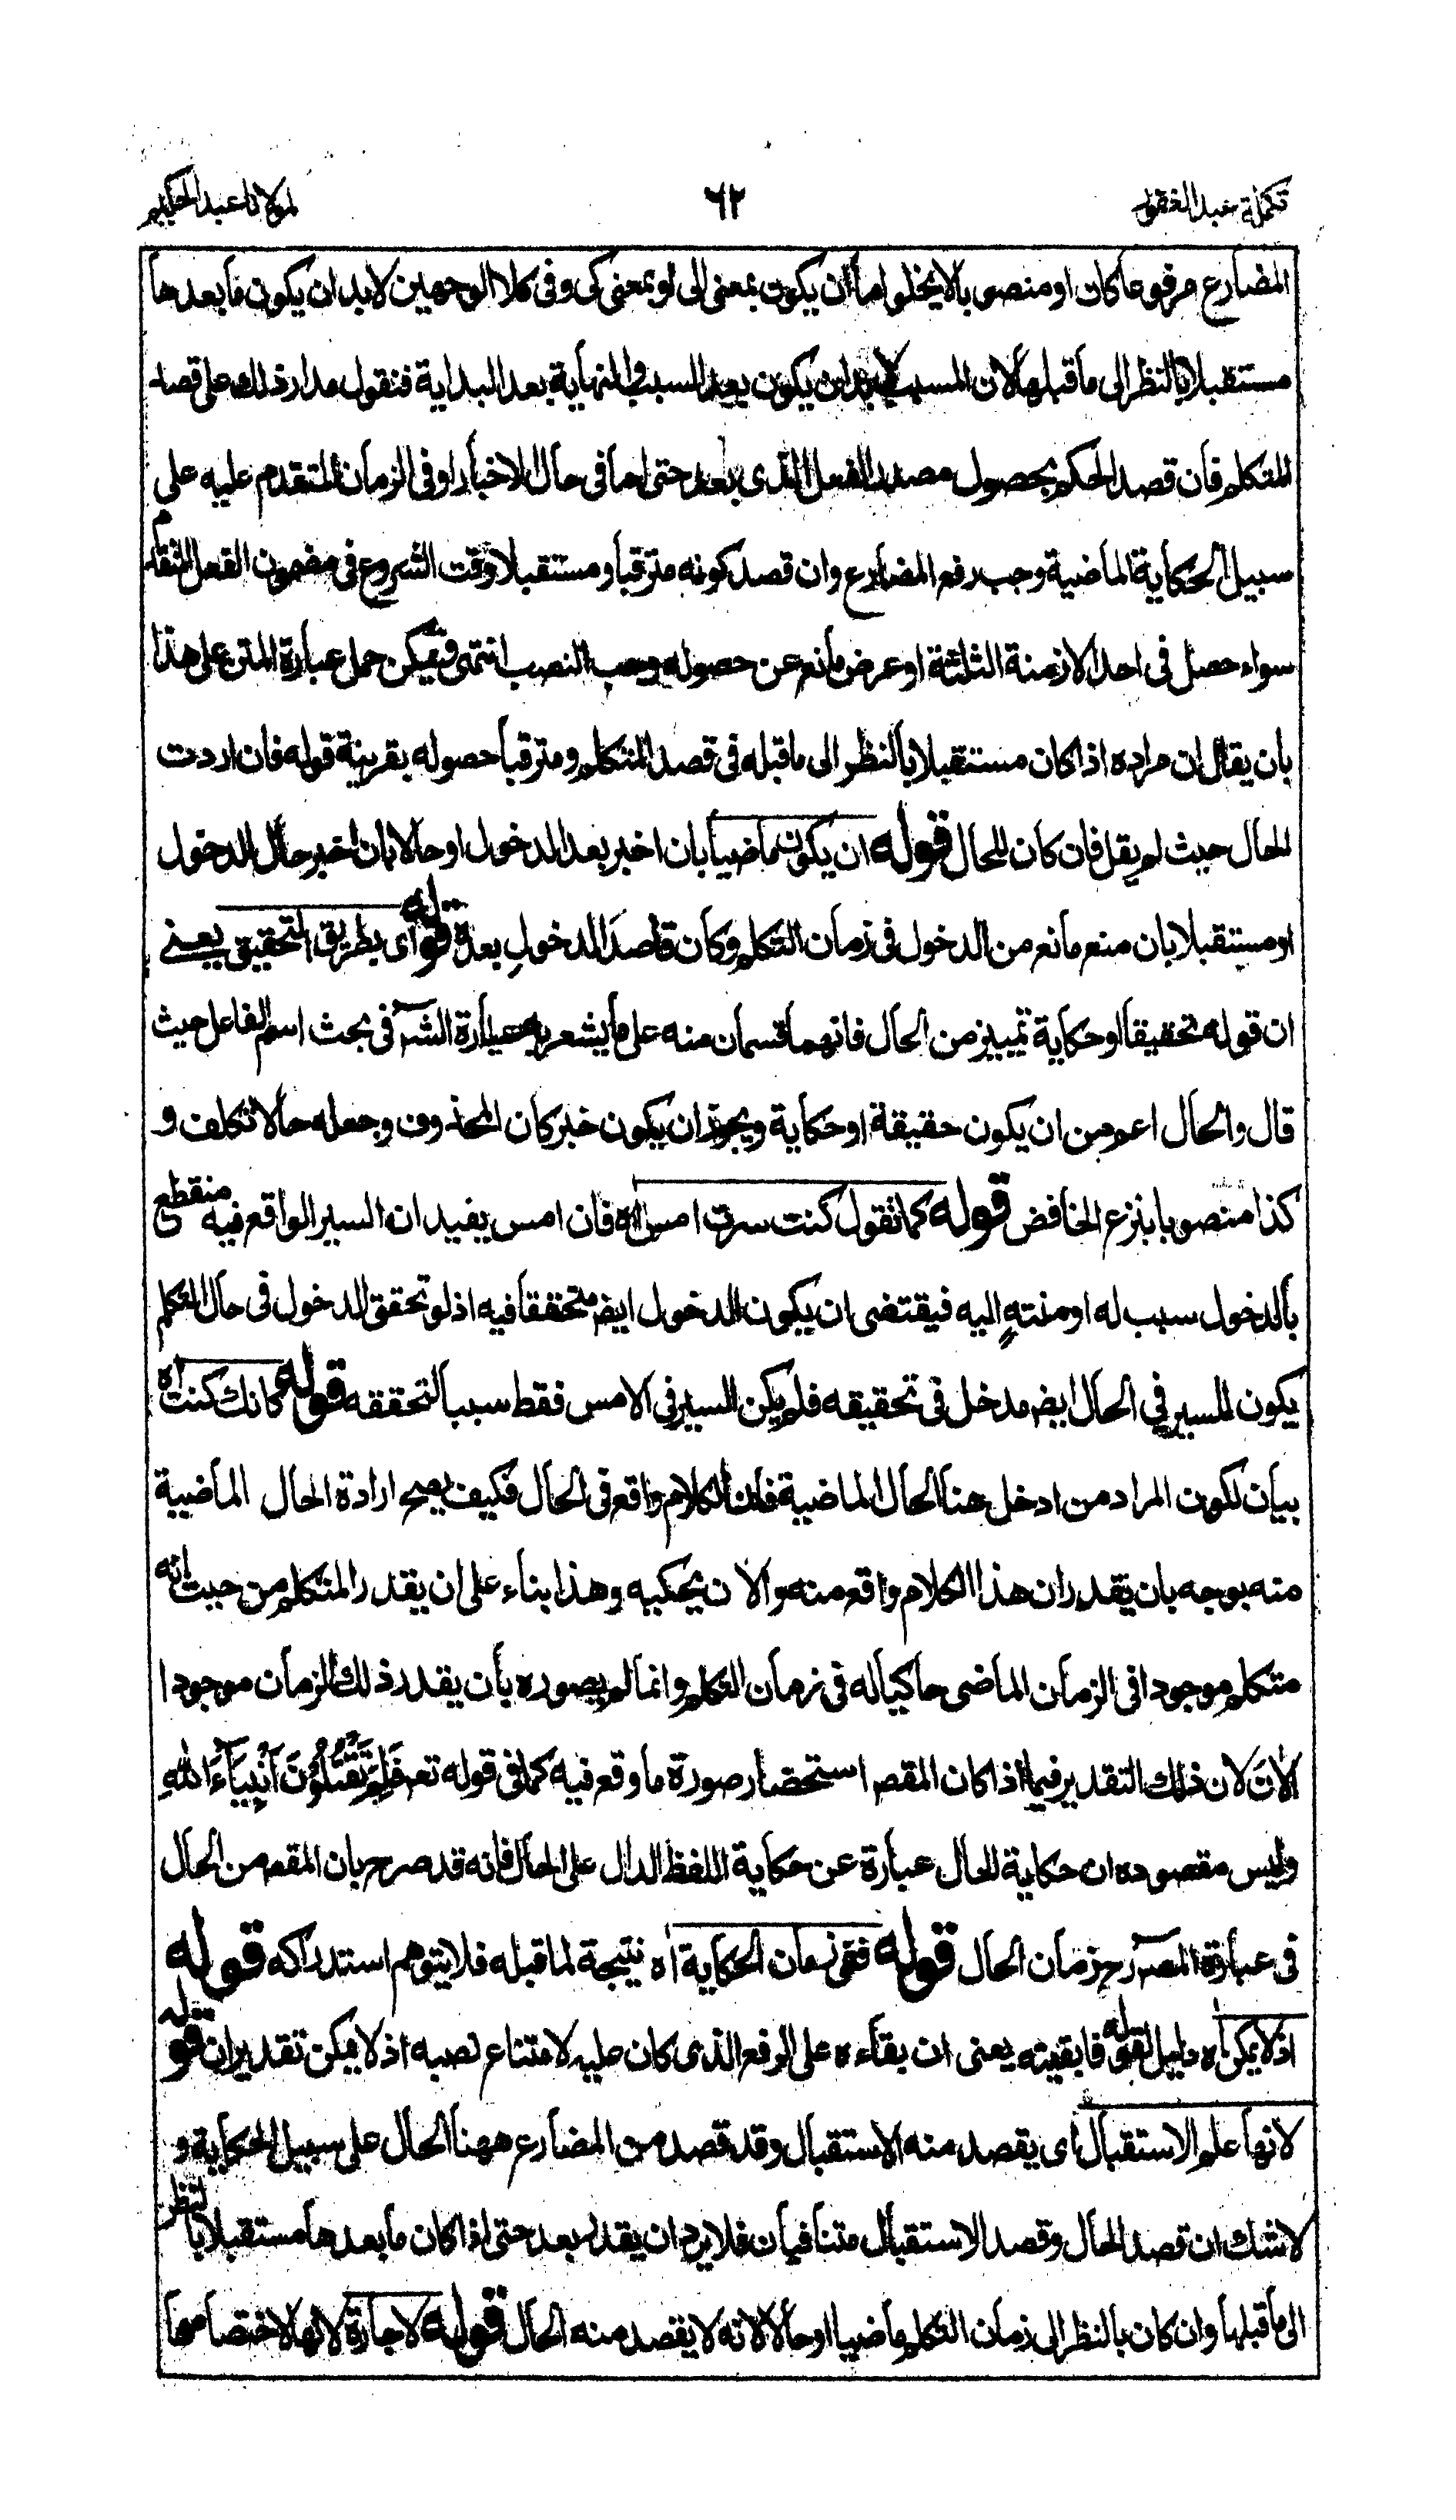 تكملة عبد الغفور
٦٢
لمولانا عبد الحكيم
المضارع مرفوعا كان او منصوبا لا يخلو اما ان يكون بمعنى الى او بمعنى كى وفى كلا الوجهين لا بد ان يكون ما بعدها
مستقبلا بالنظر الى ما قبلها لان المسبب لا بد ان يكون بعد السبب والنهاية بعد البداية فنقول مدار ذلك على قصد
المتكلم فان قصد الحكم بحصول مصدر الفعل الذى بعد حتى اما فى حال الاخبار او فى الزمان المتقدم عليه على
سبيل الحكاية الماضية وجب رفع المضارع وان قصد كونه مترقبا ومستقبلا وقت الشروع فى مضمون الفعل المتقدم
سواء حصل فى احد الازمنة الثلثة او عرض مانع عن حصوله وجب النصب انتهى فيمكن حمل عبارة المتن على هذا
بان يقال ان مراده اذا كان مستقبلا بالنظر الى ما قبله فى قصد المتكلم ومترقبا حصوله بقرينة قوله فان اردت
الحال حيث لم يقل فان كان للحال قوله ان يكون ماضيا بان اخبر بعد الدخول او حالا بان اخبر حال الدخول
او مستقبلا بان منع مانع من الدخول فى زمان التكلم وكان قاصد الدخول بعده قوله اى بطريق التحقيق يعنى
ان قوله تحقيقا او حكاية تمييز من الحال فانهما قسمان منه على ما يشعر به عبارة الشرح فى بحث اسم الفاعل حيث
قال والحال اعم من ان يكون حقيقة او حكاية ويجوز ان يكون خبر كان المحذوف وجعله حالا تكلف و
كذا منصوبا بنزع الخافض قوله كما تقول كنت سرت امس اه فان امس يفيد ان السير الواقع فيه منقطع
بالدخول سبب له او منتهٍ اليه فيقتضى ان يكون الدخول ايضا متحققا فيه اذ لو تحقق الدخول فى حال التكلم
يكون للسير فى الحال ايضا مدخل فى تحقيقه فلم يكن السير فى الامس فقط سببا لتحققه قوله كانك كنت اه
بيان لكون المراد من ادخل هنا الحال الماضية فان الكلام واقع فى الحال فكيف يصح ارادة الحال الماضية
منه بوجه بان يقدر ان هذا الكلام واقع منه والآن يحكيه وهذا بناء على ان يقدر المتكلم من حيث انه
متكلم موجودا فى الزمان الماضى حاكيا له فى زمان التكلم وانما لم يصوره بان يقدر ذلك الزمان موجودا
الآن لان ذلك التقدير فيما اذا كان المقص استحضار صورة ما وقع فيه كما فى قوله تعه فَلِمَ تَقْتُلُوْنَ اَنْبِيَآءَ اللهِ
وليس مقصوده ان حكاية الحال عبارة عن حكاية اللفظ الدال على الحال فانه قد صرح بان المقصه من الحال
فى عبارة المصرح زمان الحال قوله ففى زمان الحكاية اه نتيجة لما قبله فلا يتوهم استدراكه قوله
اذ لا يمكن اه دليل لقوله فابقيته يعنى ان بقاءه على الرفع الذى كان عليه لامتناع نصبه اذ لا يمكن تقدير ان قوله
لانها علم الاستقبال اى يقصد منه الاستقبال وقد قصد من المضارع ههنا الحال على سبيل الحكاية و
لا شك ان قصد الحال وقصد الاستقبال متنافيان فلا يرد ان يقدر بعد حتى اذا كان ما بعدها مستقبلا بالنظر
الى ما قبلها وان كان بالنظر الى زمان التكلم ماضيا او حالا لانه لا يقصد منه الحال قوله لا جارة لانها لاختصاصها